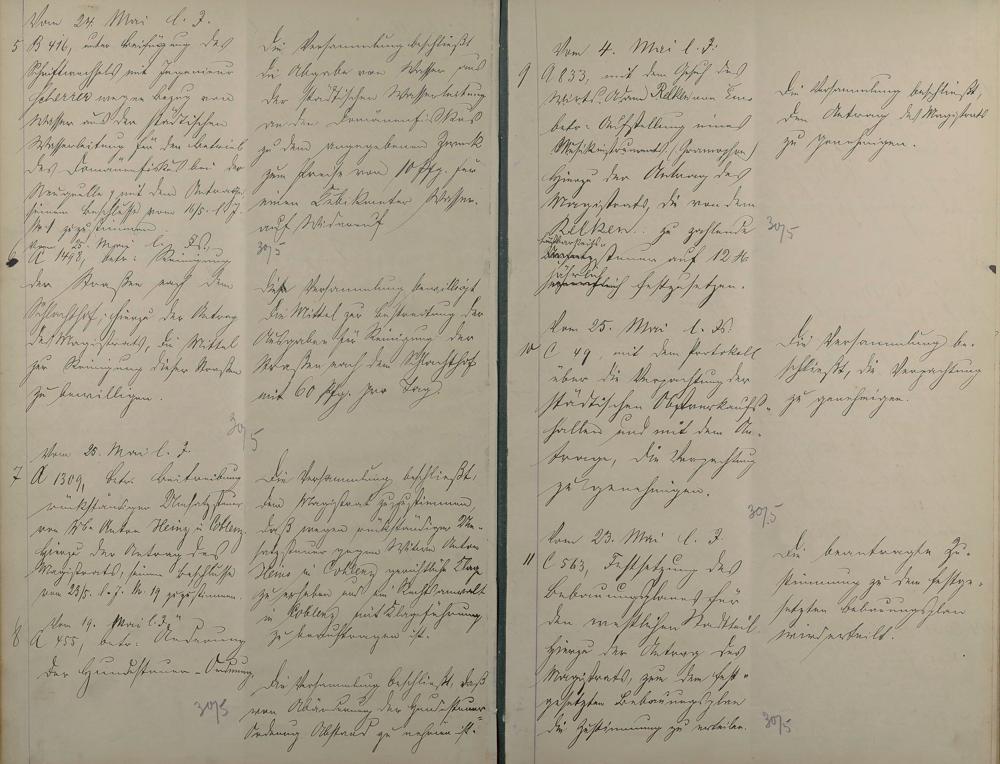 Vom 24. Mai l. J.
5 B 416, unter Beifügung des
Schriftwechsels mit Ingenieur
Scherrer wegen Bezug von
Wasser aus der städtischen
Wasserleitung für den Betrieb
des Domänenfiskus bei der
Neuquelle, mit dem Antrage
seinem Beschlusse vom 16/5. l. J.
zuzustimmen.
Die Versammlung beschließt
die Abgabe von Wasser aus
der städtischen Wasserleitung
an den Domänenfiskus
zu dem angegebenen Zweck
zum Preise von 10 Pfg. für
einen Cubikmeter Wasser.
auf Widerruf
30/5
Vom 25. Mai l. Js.
6 A 1498, betr: Reinigung
der Straßen nach dem
Schlachthof; hierzu der Antrag
des Magistrats, die Mittel
zur Reinigung dieser Straßen
zu bewilligen.
Die Versammlung bewilligt
die Mittel zur Bestreitung der
Ausgaben für Reinigung der
Straßen nach dem Schlachthof
mit 60 Pfg. pro Tag.
30/5
Vom 25. Mai l. J.
7 A 1309, betr. Beitreibung
rückständiger Umsatzsteuer
von Wwe Anton Heinz in Coblenz.
Hierzu der Antrag des
Magistrats, seinem Beschlusse
vom 23/5. l. J. No. 19 zuzustimmen.
Die Versammlung beschließt,
dem Magistrat zuzustimmen,
daß wegen rückständiger Um-
satzsteuer gegen Witwe Anton
Heinz in Coblenz gerichtliche Klage
zu erheben und ein Rechtsanwalt
in Coblenz mit Klageführung
zu beauftragen ist.
Vom 19. Mai l. J.
8 A 455, betr: Änderung
der Hundesteuer-Ordnung.
Die Versammlung beschließt, daß
von Abänderung der Hundesteuer-
Ordnung Abstand zu nehmen ist.
30/5
Vom 4. Mai l. J.
9 A 833, mit dem Gesuch des
Wirts Adam Rilke von
betr: Aufstellung eines
Musikinstruments (Gramophon)
Hierzu der Antrag des
Magistrats, die von dem
Rilke zu zahlende
Lustbarkeits-
steuer auf 12 M
jährlich
festzusetzen.
Die Versammlung beschließt,
den Antrag des Magistrats
zu genehmigen.
30/5
Vom 25. Mai l. Js.
10 C 49, mit dem Protokoll
über die Verpachtung der
städtischen Obstverkaufs-
hallen und mit dem An-
trage, die Verpachtung
zu genehmigen.
Die Versammlung be-
schließt, die Verpachtung
zu genehmigen.
30/5
Vom 23. Mai l. J.
11 C 563, Festsetzung des
Bebauungsplanes für
den westlichen Stadtteil.
Hierzu der Antrag des
Magistrats, zum dem fest-
gesetzten Bebauungsplan
die Zustimmung zu erteilen.
Die beantragte Zu-
stimmung zu dem festge-
setzten Bebauungsplan
wird erteilt.
30/5